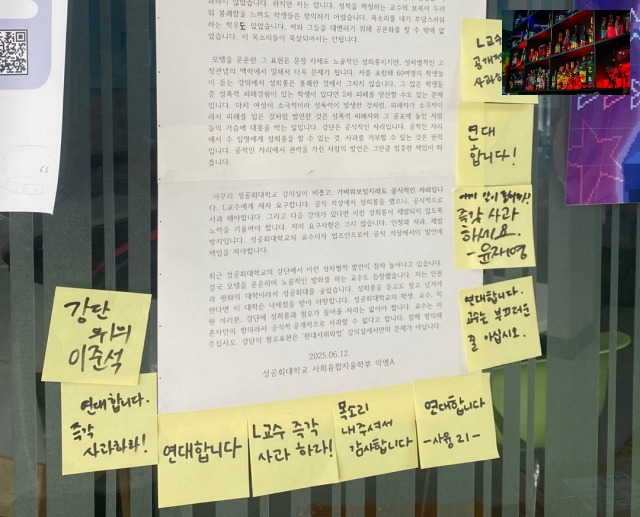 하지 않습니다. 하지만 저는 압니다. 성적을 책정하는 교수의 보복이 두려
워 불쾌함을 느껴도 학생들은 항의하기 어렵습니다. 목소리를 내기 부담스러워
하는 학우도 있었습니다. 저와 그들을 대변하기 위해 공론화를 할 수 밖에 없
었습니다. 이 목소리들이 묵살되어서는 안됩니다.
모텔을 운운한 그 표현은 문장 자체도 노골적인 성희롱이지만, 성차별적인 고
정관념의 맥락에서 말해서 더욱 문제가 됩니다. 저를 포함해 60여명의 학생들
이 듣는 강의에서 성희롱은 불쾌한 것에서 그치지 않습니다. 그 많은 학생들
중 성폭력 피해경험이 있는 학생이 있다면 2차 피해를 양산할 수도 있는 문제
입니다. 마치 여성이 소극적이라 성폭력이 발생한 것처럼, 피해자가 소극적이
라서 피해를 입은 것처럼 발언한 것은 성폭력 피해자와 그 공포에 놓인 사람
들의 가슴에 대못을 박는 일입니다. 강단은 공식적인 자리입니다. 공적인 자리
에서 수 십명에게 성희롱을 할 수 있는 것, 사과를 거부할 수 있는 것은 권력
입니다. 공적인 자리에서 권력을 가진 사람의 발언은 그만큼 엄중한 책임이 따
릅니다.
아무리 성공회대학교 강의실이 비좁고, 가벼워보일지라도 공식적인 자리입니
다. L교수에게 재차 요구합니다. 공식 석상에서 성희롱을 했으니, 공식적으로
사과 해야합니다. 그리고 다음 강의가 있다면 이런 성희롱이 재발되지 않도록
노력을 기울여야 합니다. 저의 요구사항은 크지 않습니다. 인정과 사과, 재발
방지입니다. 성공회대학교의 교수이자 법조인으로서 공식 석상에서의 발언에
책임을 져야합니다.
최근 성공회대학교의 강단에서 이런 성차별적 발언이 점차 늘어나고 있습니다.
결국 모텔을 운운하며 노골적인 발화를 하는 교수도 등장했습니다. 저는 인권
과 평화의 대학이라서 성공회대를 골랐습니다. 성희롱을 듣고도 참고 넘겨야
한다면 이 대학은 낙제점을 받아 마땅합니다. 성공회대학교의 학생, 교수, 직
원 여러분. 강단에 성희롱과 혐오가 들어올 자리는 없어야 합니다. 교수는 저
혼자만의 항의라서 공식적 공개적으로 사과할 수 없다고 합니다. 함께 항의해
주십시오. 강단의 혐오표현은 '현대사회와법' 강의실에서만의 문제가 아닙니다.
2025.06.12.
성공회대학교 사회융합자율학부 익명A
L교수
공개적
사과하
연대
합니다!
즉각 사과
하세요.
-윤재영
연대합니다.
교수는 부끄러운
줄 아십시오.
강단
위의
이준석
연대합니다.
즉각
사과하라!
연대합니다
L교수 즉각
사과 하라!
목소리
내 주셔서
감사합니다
연대합니다
-사융 21-